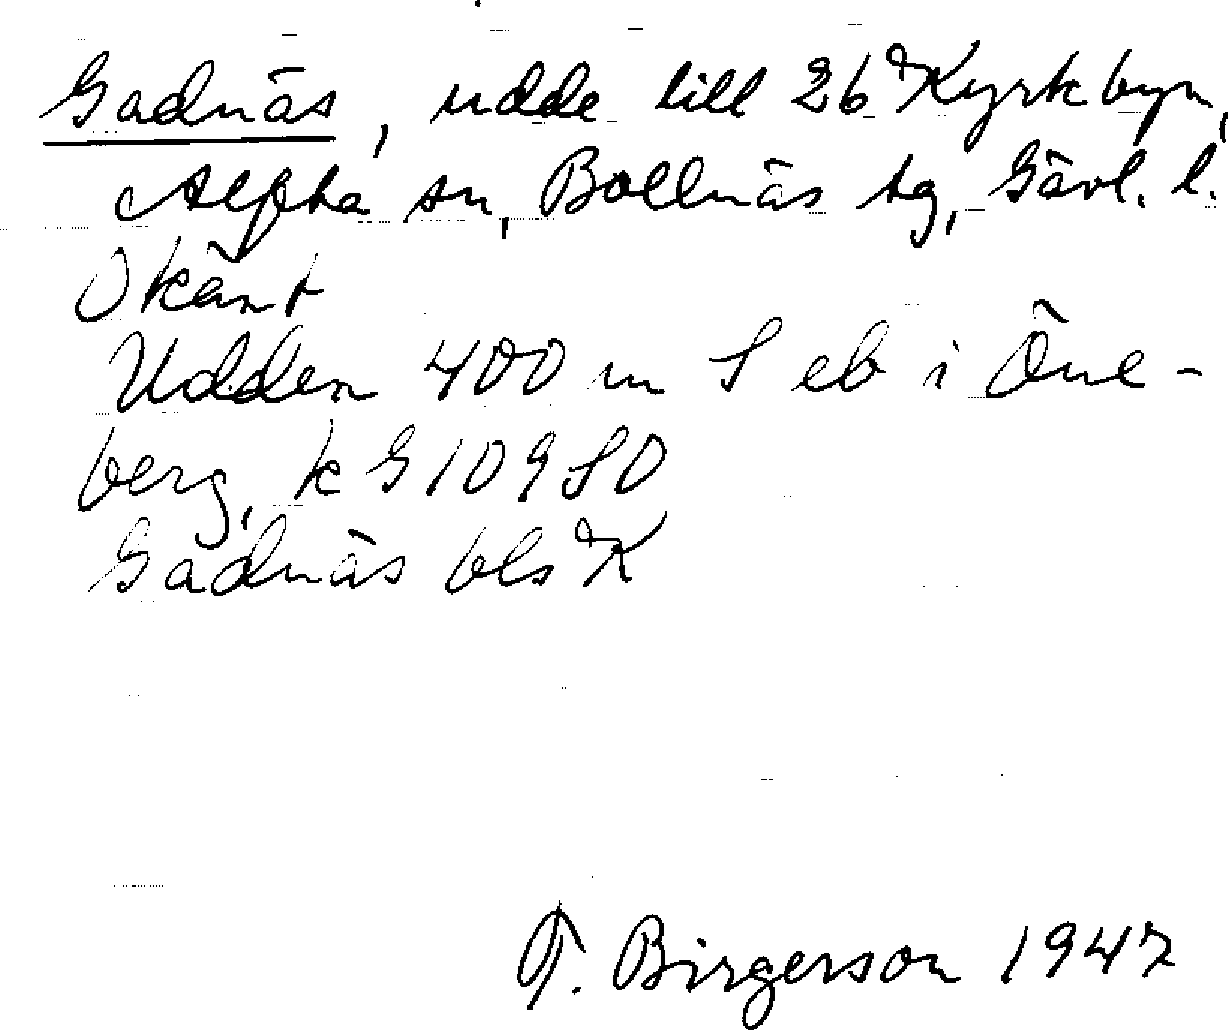 Gadnäs, udde till 26 Kyrkbyn,
Alfta sn, Bollnäs tg, Gävl. l.
Okänt
Udden 400 m S eb i Öne-
berg, k G 109 SO
Gadnäs bls K
T. Birgerson 1947